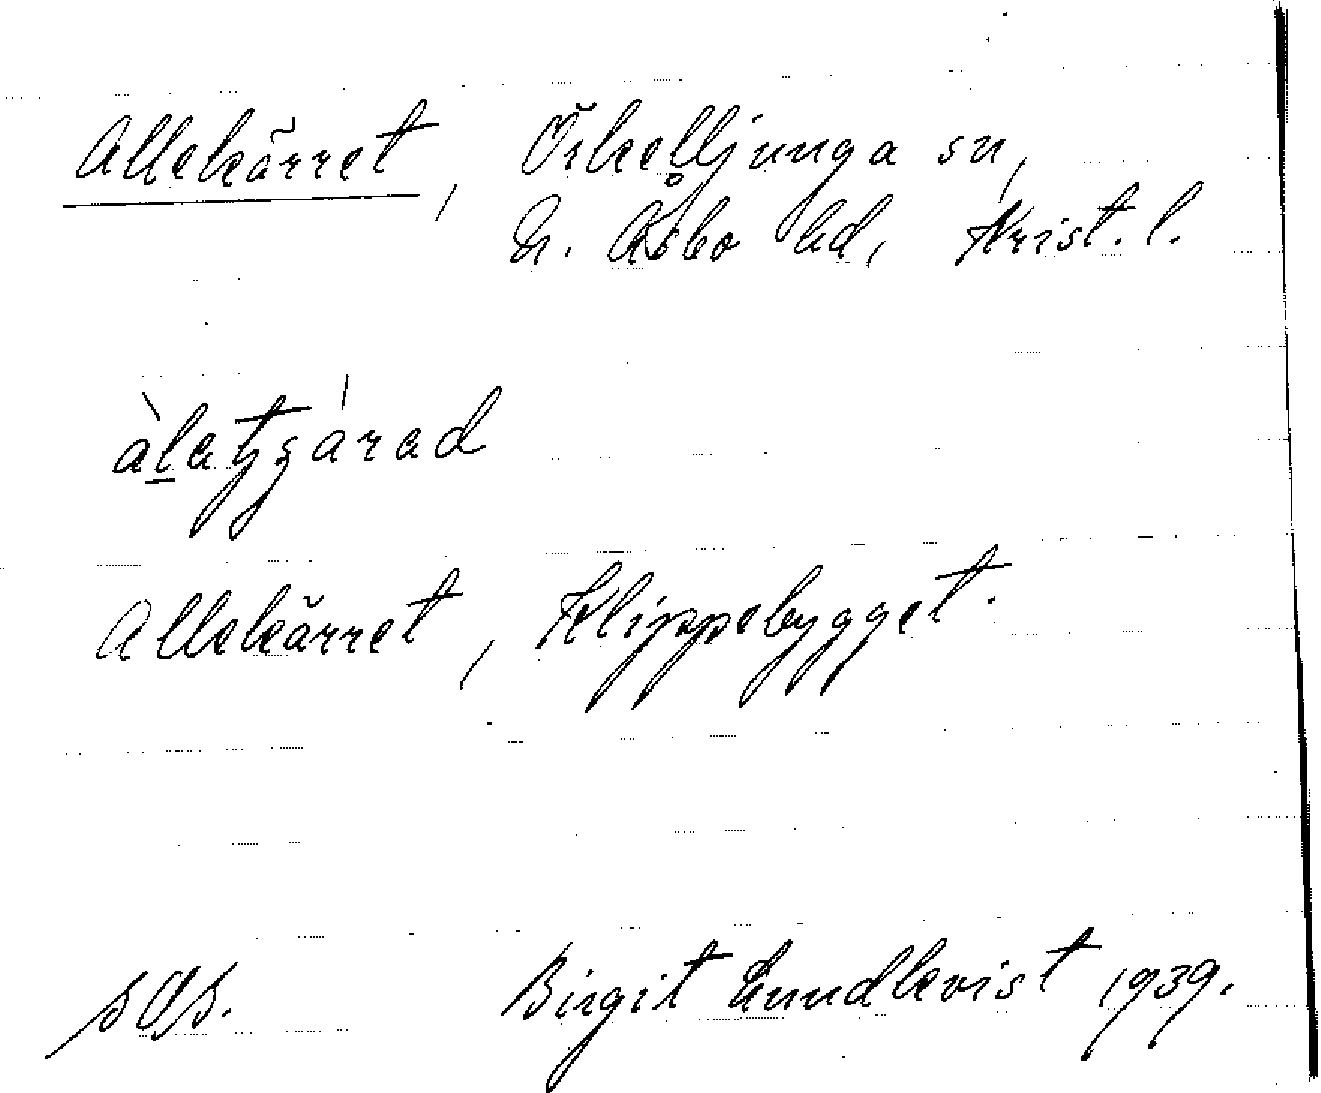 Allekärret, Örkelljunga sn,
N. Åsbo hd, Krist. l.
Allekärret, Klippebygget.
Birgit Lundkvist 1939.